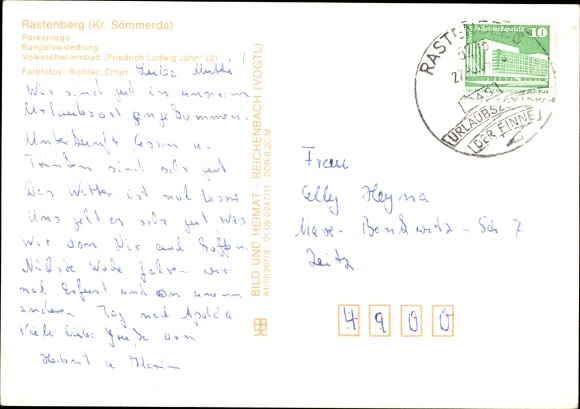 Rastenberg (Kr. Sömmerda)
Parkanlage
Bungalowsiedlung
Volksschwimmbad „Friedrich Ludwig Jahn" (2)
Farbfotos: Richter, Erfurt
Liebe Mutti!
Wir sind gut in unserem
Urlaubsort angekommen.
Unterkunft Essen u.
Trinken sind sehr gut
Das Wetter ist
Uns geht es sehr gut was
wir von Dir auch hoffen.
Nächste Woche fahren wir
nach Erfurt und an einem
anderen Tag nach Apolda.
Viele liebe Grüße von
Herbert u.
BILD UND HEIMAT · REICHENBACH (VOGTL)
A1/III/26/13 01 09 0247/11 DDR 0,20 M
10
RASTENBERG
URLAUBSZ
DER FINNE
Frau
Elly Heyna
Max-
Zeitz
4900